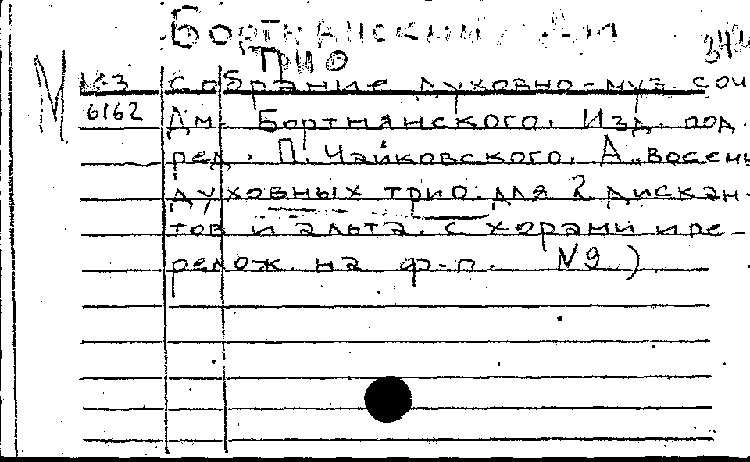 Бортнянский, Дм
ТРИО
М
М-3 Собрание духовно-муз. соч
6162 Дм. Бортнянского. Изд. под.
ред. П. Чайковского. А. Восемь
духовных трио для 2 дискан-
тов и альта с хорами и пе-
релож. на ф-п. №9)